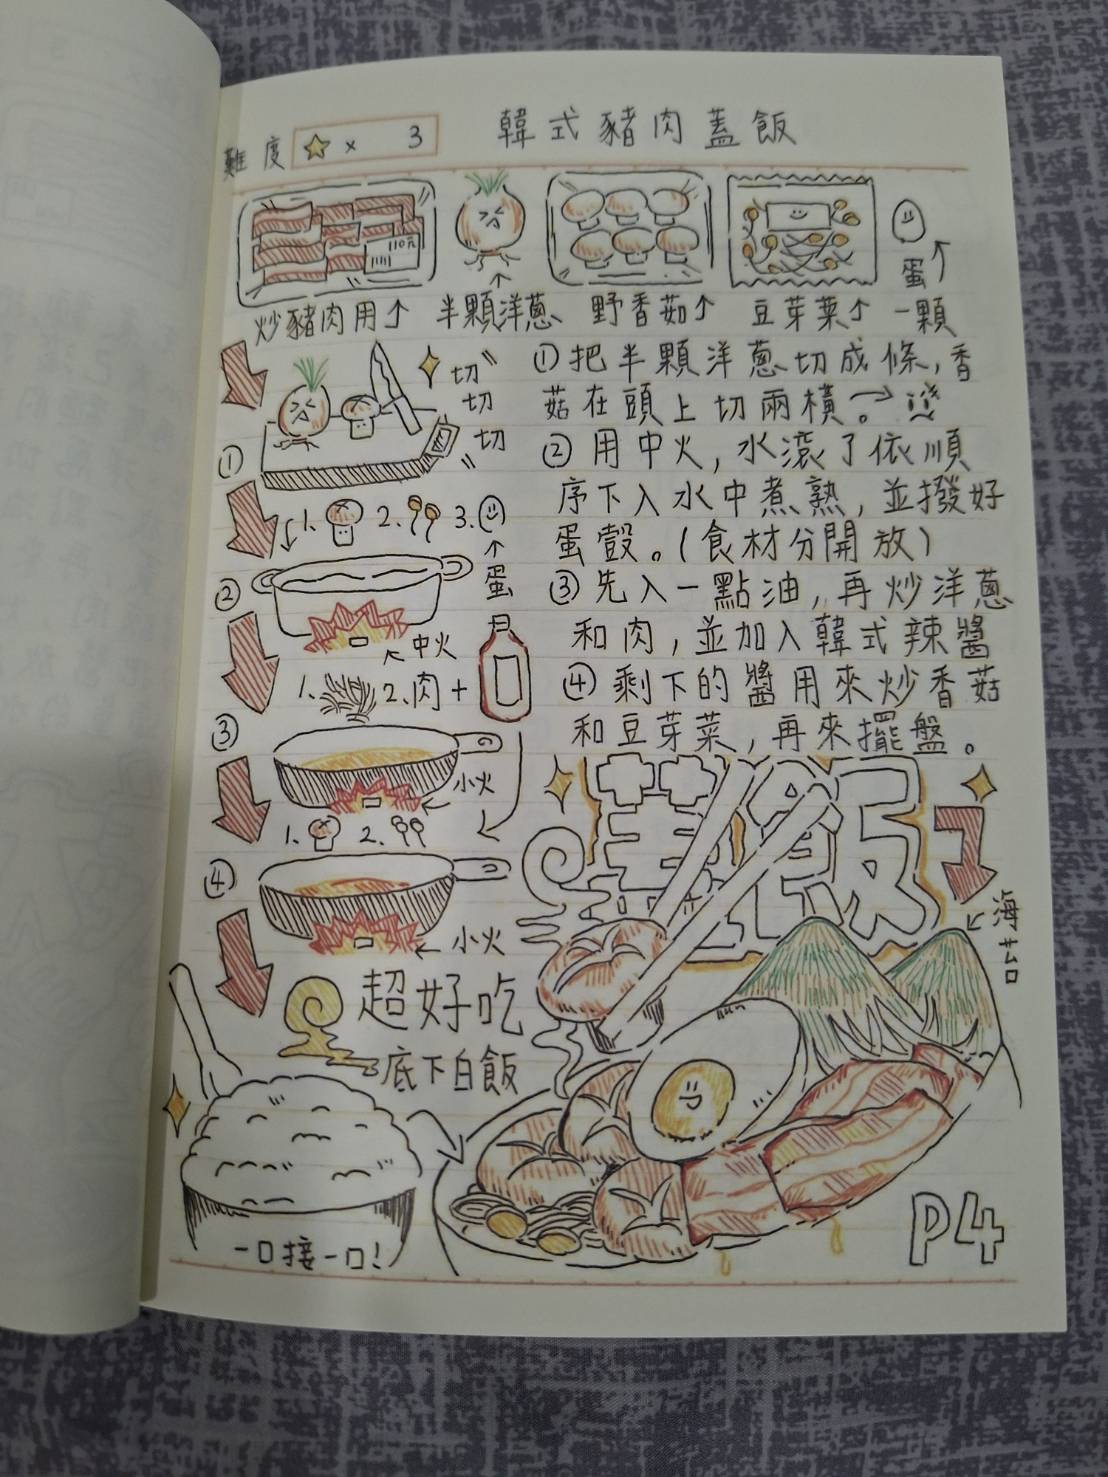 難度 ☆× 3
韓式豬肉蓋飯
110元
炒豬肉用↑
半顆洋蔥
野香菇↑
豆芽菜↑
蛋↑
一顆
切〃
切
切〃
①
①把半顆洋蔥切成條,香
菇在頭上切兩橫。→
②用中火,水滾了依順
序下入水中煮熟,並撥好
蛋殼。(食材分開放)
③先入一點油,再炒洋蔥
和肉,並加入韓式辣醬
④剩下的醬用來炒香菇
和豆芽菜,再來擺盤。
1. 2. 3.
↑
蛋
②
←中火
1. 2.肉+
③
←小火
1. 2.
④
←小火
蓋飯
海苔
超好吃
底下白飯
一口接一口!
P4